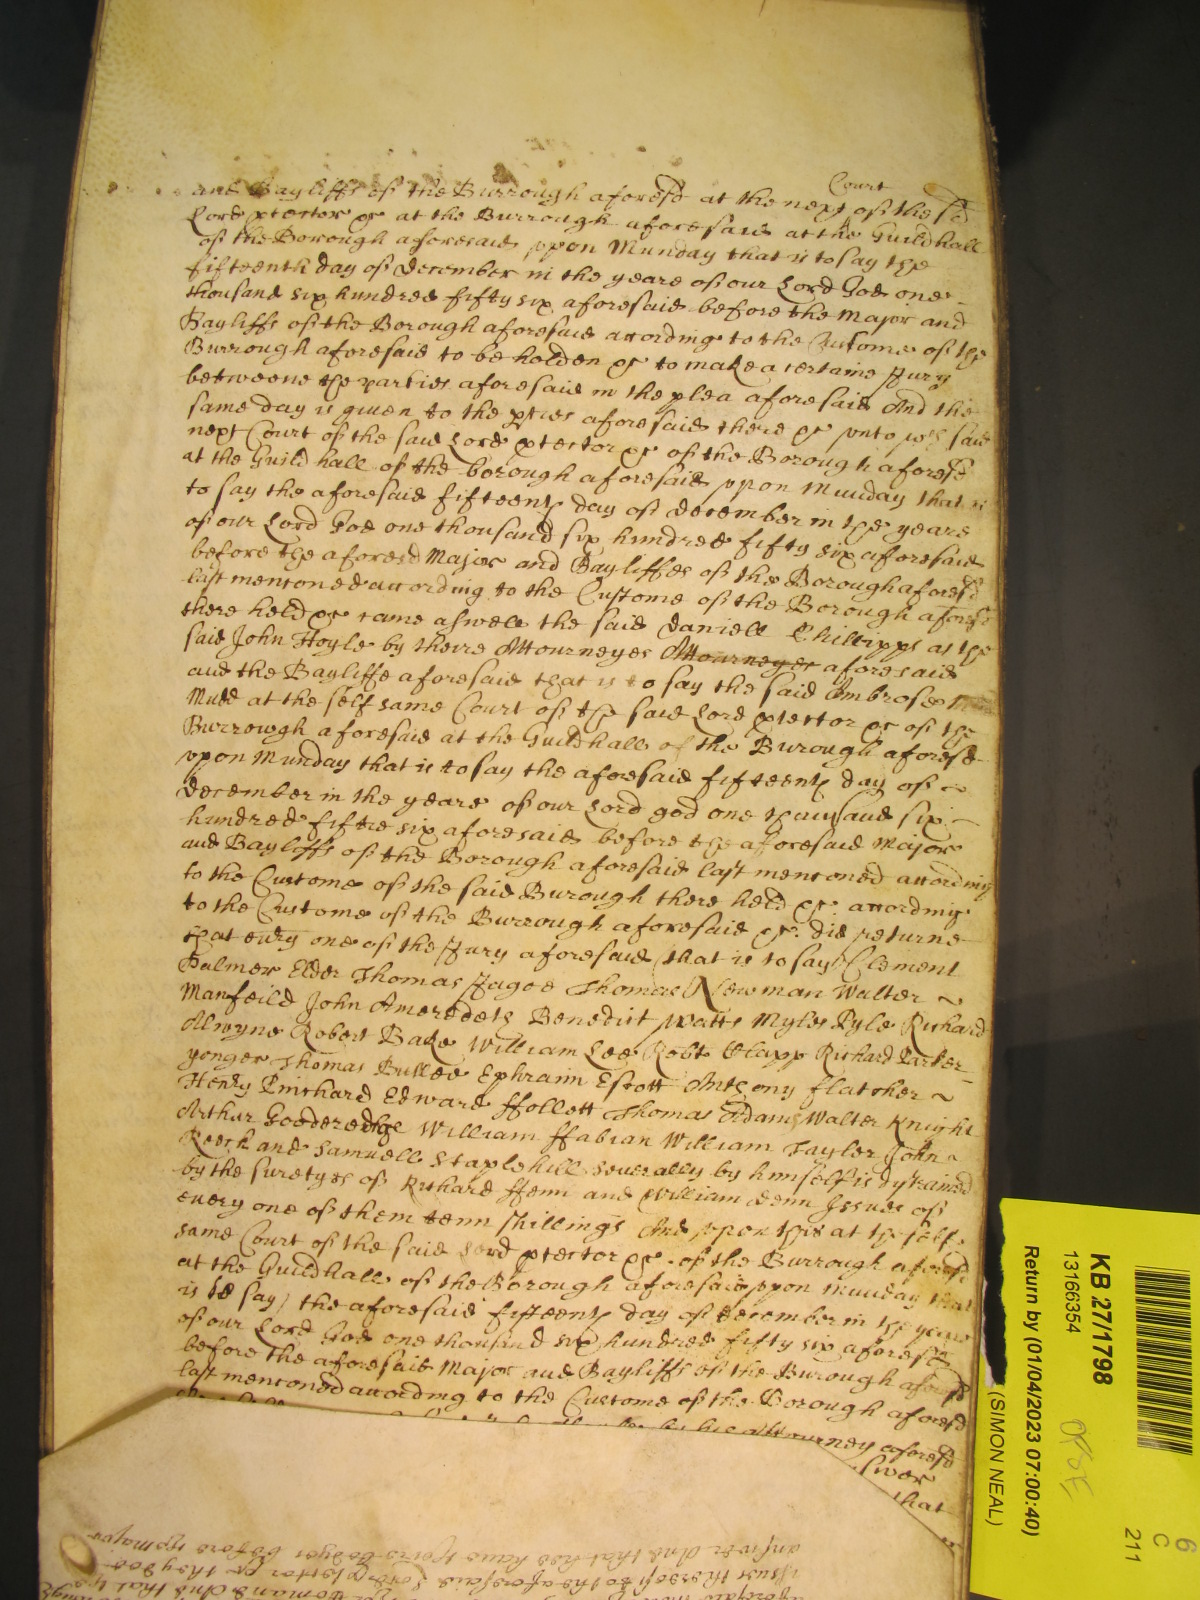 Court
and Bayliffs of the Burrough aforesd at the next of the sd
Lord ptector &c at the Burrough aforesaid at the Guildhall
of the Borough aforesaid vpon Munday that is to say the
fifteenth day of December in the yeare of our Lord God one
thousand six hundred fifty six aforesaid before the Major and
Bayliffs of the Borough aforesaid according to the Custome of the
Burrough aforesaid to be holden &c to make a certaine Jury
betweene the parties aforesaid in the plea aforesaid And the
same day is giuen to the pties aforesaid there &c vnto wch said
next Court of the said Lord ptector &c of the Borough aforesd
at the Guild hall of the borough aforesaid vpon Munday that is
to say the aforesaid fifteenth day of December in the yeare
of our Lord God one thousand six hundred fifty six aforesaid
before the aforesd Major and Bayliffes of the Borough aforesd
last menconed according to the Custome of the Borough aforesd
there held &c came aswell the said Daniell Phillipps as the
said John Hoyle by theire Attourneyes Attourneyes aforesaid
and the Bayliffe aforesaid that is to say the said Ambrose
Mudd at the self same Court of the said Lord ptector &c of the
Burrough aforesaid at the Guildhall of the Burough aforesd
vpon Munday that is to say the aforesaid fifteenth day of
December in the yeare of our Lord god one thousand six
hundred fiftie six aforesaid before the aforesaid Major
and Bayliffs of the Borough aforesaid last menconed according
to the Custome of the said Burough there held &c according
to the Custome of the Burrough aforesaid &c did returne
that eury one of the Jury aforesaid (that is to say) Clement
Palmer Elder Thomas Jagoe Thomas Newman Walter
Manfeild John Ameredeth Benedict Watts Myles Pyle Richard
Alwyne Robert Bake William Lee Robt Clapp Richard Parker
yonger Thomas Bulled Ephraim Escott Anthony flatcher
Henry Prichard Edward ffollett Thomas Adams Walter Knight
Arthur Gooderedge William ffabian William Tayler John
Reech and Samuell Staplehill seuerally by himself is dystrained
by the suretyes of Richard ffenn and William Denn Issues of
euery one of them tenn shillings And vpon this at the self
same Court of the said Lord ptector &c of the Burrough aforesd
at the Guildhall of the Borough aforesaid vpon Munday that
is to say) the aforesaid fifteenth day of December in the yeare
of our Lord God one thousand six hundred fifty six aforesd
before the aforesaid Major and Bayliffs of the Burough aforesd
last menconed according to the Custome of the Borough aforesd
by his Attourney aforesd
swer
that
answer And that hee haue theire bodyes before the major
aforesaid Lord ptector &c they doe
KB 27/1798
13166354
Return by (01/04/2023 07:00:40)
(SIMON NEAL)
6
C
211